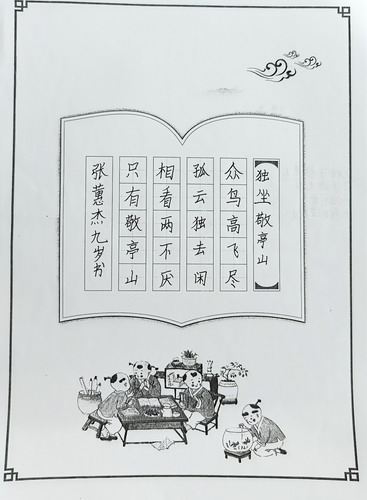 独坐敬亭山
众鸟高飞尽
孤云独去闲
相看两不厌
只有敬亭山
张蕙杰九岁书